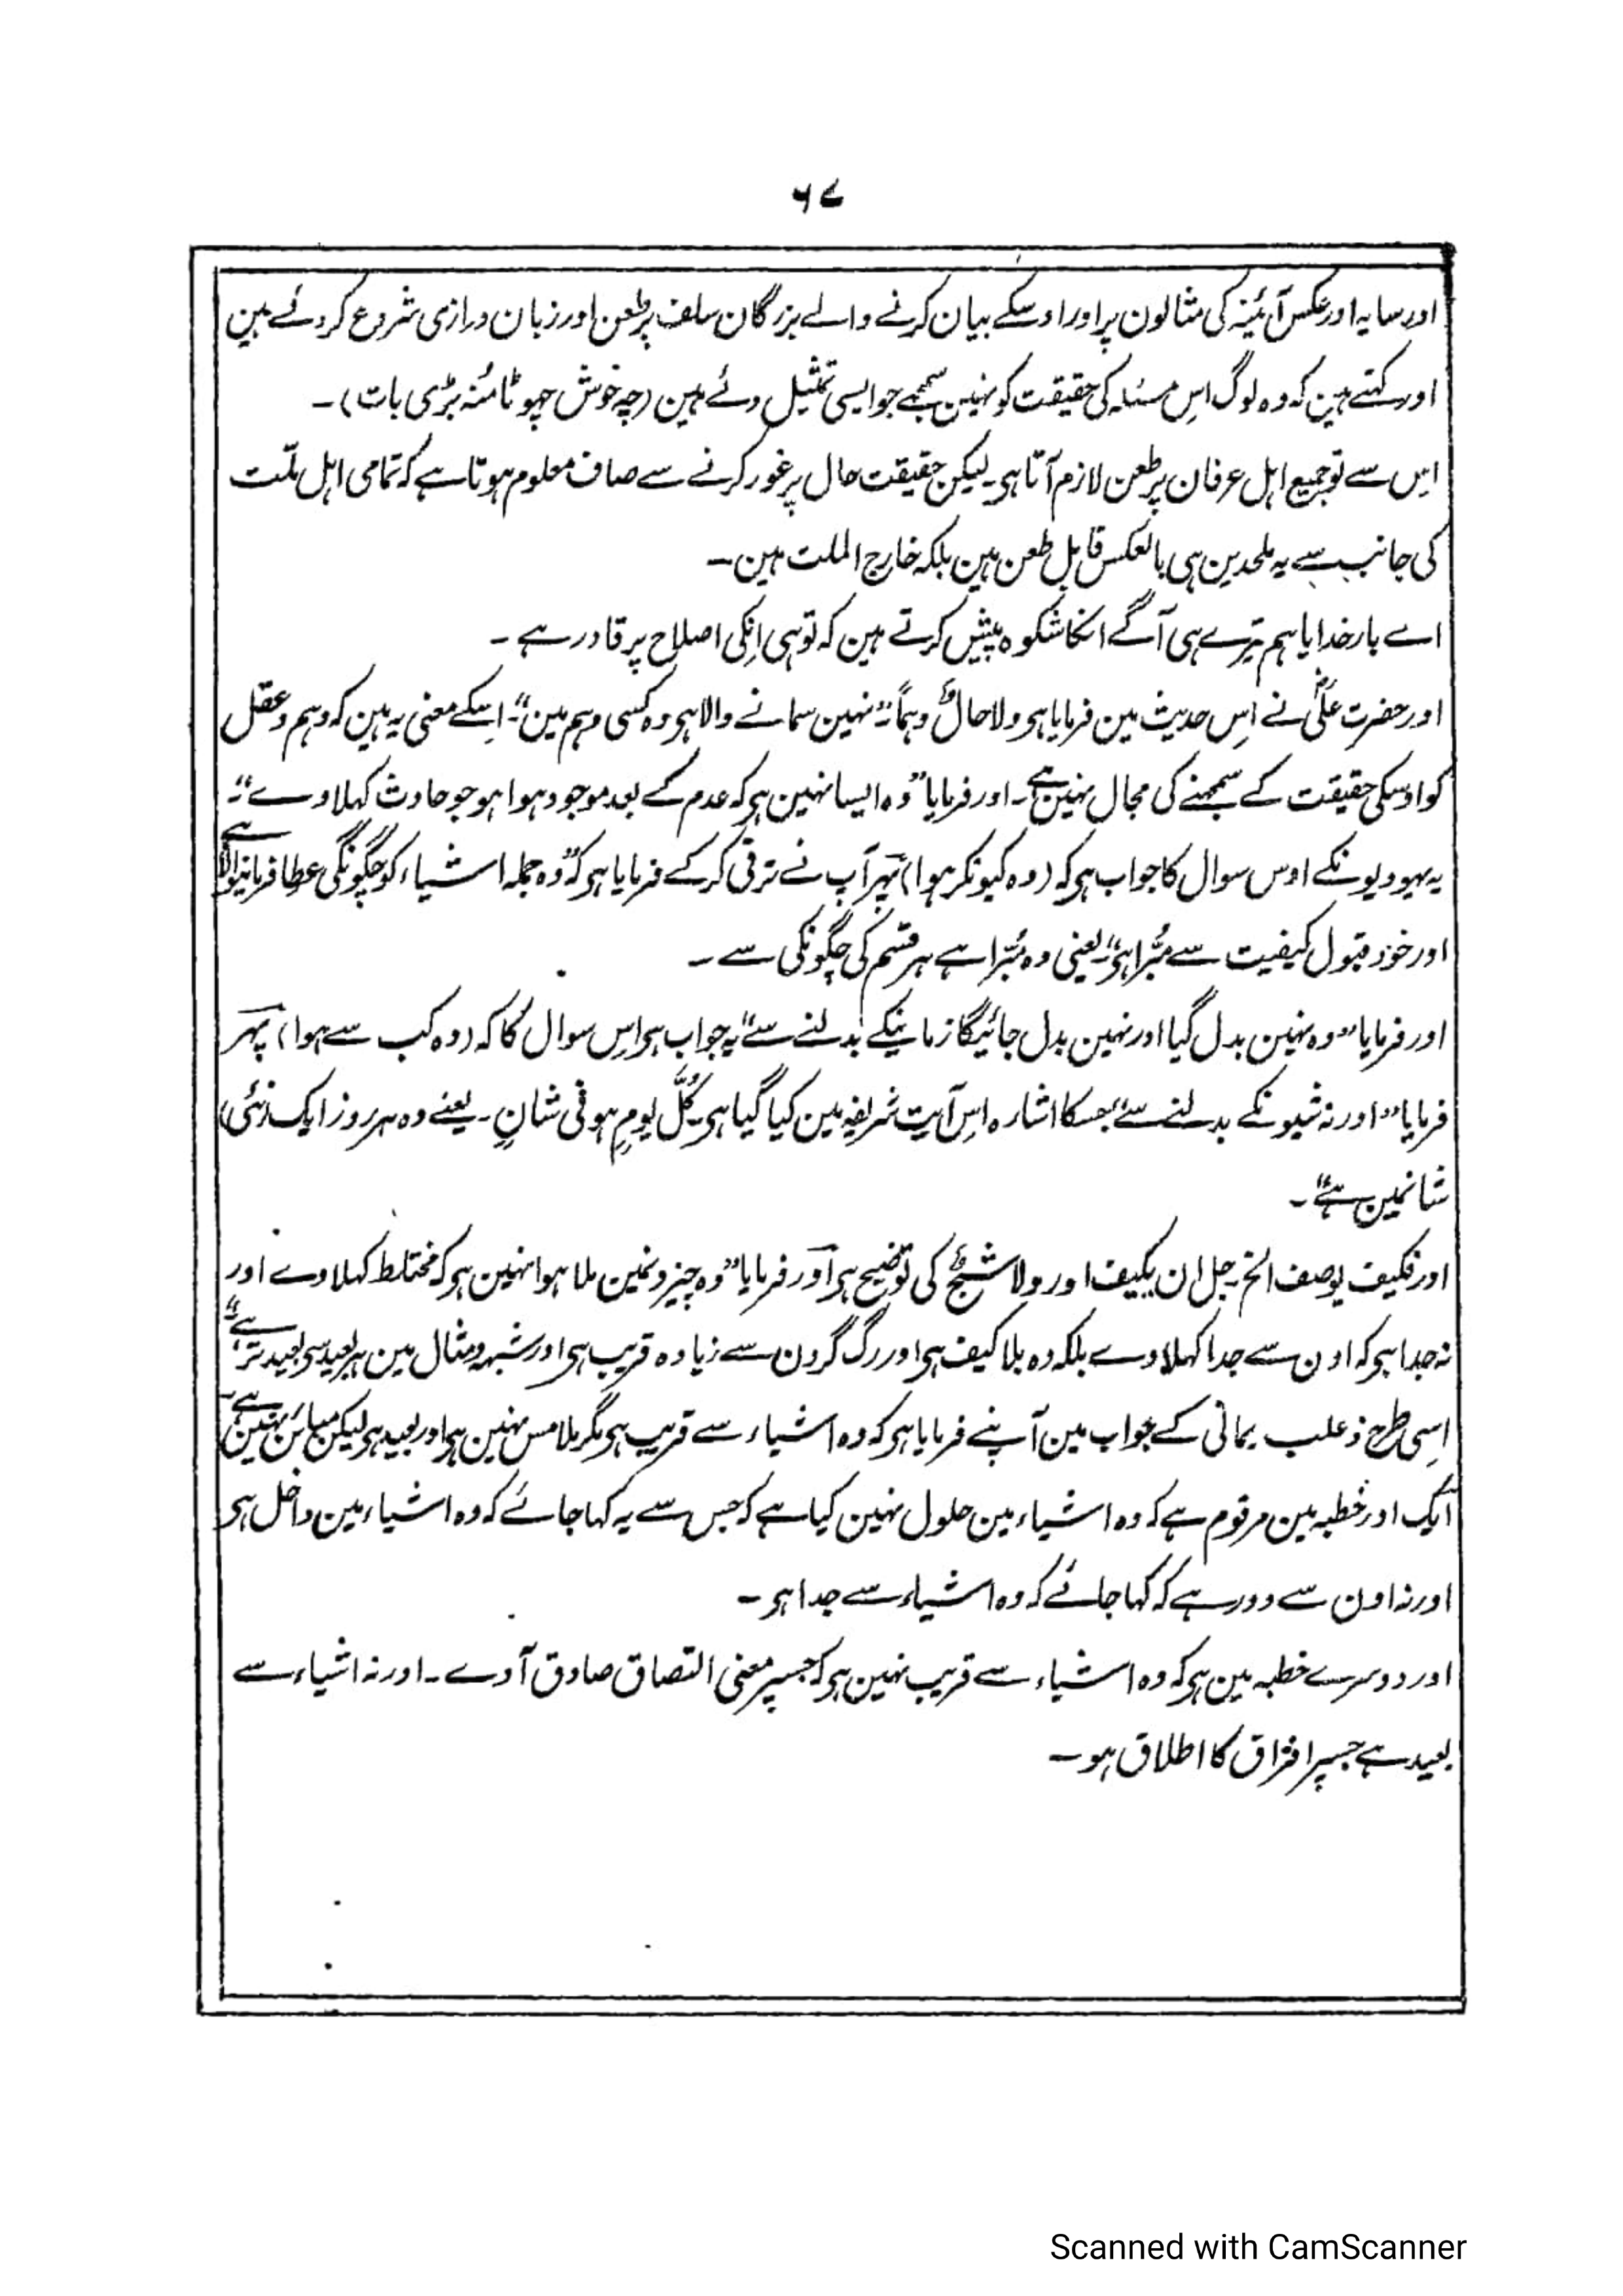 ۶۷
اور سایہ اور عکس آئینہ کی مثالون پر اور اوسکے بیان کرنے والے بزرگان سلف پر طعن اور زبان درازی شروع کردئے ہین
اور کہتے ہین کہ وہ لوگ اِس مسئلہ کی حقیقت کو نہین سمجہے جو ایسی تمثیل دئے ہین (چہ خوش چہوٹا منہ بڑی بات)۔
اِس سے تو جمیع اہل عرفان پر طعن لازم آتا ہی لیکن حقیقت حال پر غور کرنے سے صاف معلوم ہوتا ہے کہ تمامی اہل ملّت
کی جانب سے یہ ملحدین ہی بالعکس قابل طعن ہین بلکہ خارج الملت ہین۔
اے بار خدایا ہم تیرے ہی آگے انکا شکوہ پیش کرتے ہین کہ تو ہی انکی اصلاح پر قادر ہے۔
اور حضرت علیؓ نے اِس حدیث مین فرمایا ہی ولا حالٌ وہماً "نہین سمانے والا ہی وہ کسی وہم مین"۔ اِسکے معنی یہ ہین کہ وہم و عقل
کو اوسکی حقیقت کے سمجہنے کی مجال نہین ہے۔ اور فرمایا "وہ ایسا نہین ہی کہ عدم کے بعد موجود ہوا ہو جو حادث کہلاوے"۔
یہ یہودیونکے اوس سوال کا جواب ہی کہ (وہ کیونکر ہوا) پہر آپ نے ترقی کرکے فرمایا ہی کہ "وہ جملہ اشیاء کو چگونگی عطا فرمانیوالا ہے
اور خود قبول کیفیت سے مُبّرا ہی" یعنی وہ مُبّرا ہے ہر قسم کی چگونگی سے۔
اور فرمایا "وہ نہین بدل گیا اور نہین بدل جائیگا زمانیکے بدلنے سے" یہ جواب ہی اِس سوال کا کہ (وہ کب سے ہوا) پہر
فرمایا "اور نہ شیونکے بدلنے سے" جسکا اشارہ اِس آیت شریفہ مین کیا گیا ہی۔ کُلَّ یومٍ ہو فی شانٍ۔ یعنے وہ ہر روز ایک (نئی)
شانمین ہے"۔
اور فکیف یوصف الخ۔ جل ان یکیف اور ولا شبحٌ کی توضیح ہی اور فرمایا "وہ چیزونمین ملا ہوا نہین ہی کہ مختلط کہلاوے اور
نہ جدا ہی کہ اون سے جدا کہلاوے بلکہ وہ بلا کیف ہی اور رگ گردن سے زیادہ قریب ہی اور شبہ و مثال مین ہر بعید سی بعید تر ہے"
اِسی طرح ذعلب یمانی کے جواب مین آپنے فرمایا ہی کہ وہ اشیاء سے قریب ہی مگر ملامس نہین ہی اور بعید ہی لیکن مبائن نہین ہے۔
ایک اور خطبہ مین مرقوم ہے کہ وہ اشیاء مین حلول نہین کیا ہے کہ جس سے یہ کہا جائے کہ وہ اشیاء مین داخل ہی
اور نہ اون سے دور ہے کہ کہا جائے کہ وہ اشیاء سے جدا ہی۔
اور دوسرے خطبہ مین ہی کہ وہ اشیاء سے قریب نہین ہی کہ جسپر معنی التصاق صادق آوے۔ اور نہ اشیاء سے
بعید ہے جسپر افتراق کا اطلاق ہو۔
Scanned with CamScanner